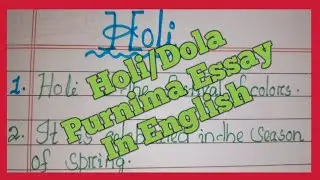 Holi
Holi/Dola
Purnima Essay
In English
1. Holi the colors.
2. It is in the season
of spring.